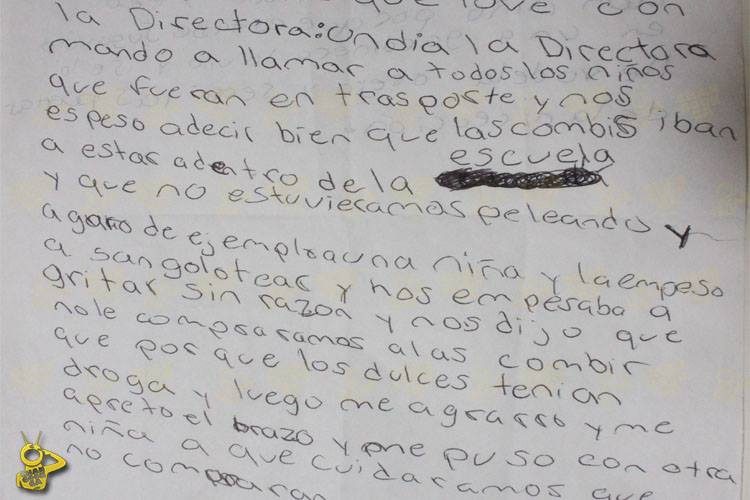 que love con
la Directora:Undia la Directora
mando a llamar a todos los niños
que fueran en trasporte y nos
espeso adecir bien que lascombis iban
a estar adentro de la escuela
y que no estuvieramos peleando y
agarro de ejemplrauna niña y laempeso
a sangolotear y nos empesaba a
gritar sin razon y nos dijo que
nole compraramos alas combir
que por que los dulces tenian
droga y luego me agrarro y me
apreto el brazo y me puso con otra
niña a que cuidaramos que
no compraran